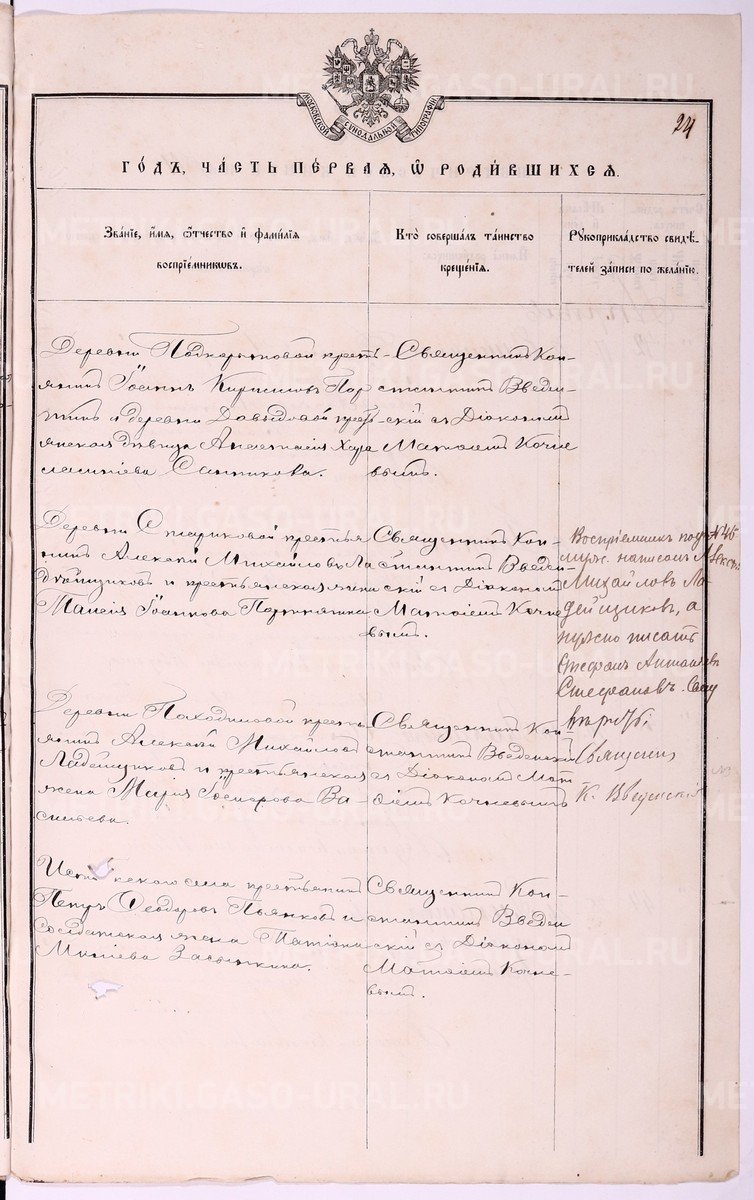 МОСКОВСКОЙ СУНОДАЛЬНОЙ ТИПОГРАФІИ
24
ГО́ДЪ, ЧА́СТЬ ПЕ́РВАЯ, Ѡ҆ РОДИ́ВШИХСЯ.
Зва́ніе, и҆́мя, ѻ҆́тчество и҆ фами́лїя
воспрїемникѡвъ.
Кто̀ соверша́лъ та́инство
креще́нїя.
Рꙋкоприкла́дство свидѣ́-
телей за́писи по жела́нїю.
Деревни Подкорытовой кресть-
янинъ Іоаннъ Кириловъ
и деревни Давыдовой кресть-
янская дѣвица Анастасія
Санникова.
Священникъ Кон-
стантинъ Введен-
скій съ Діакономъ
Матѳіемъ Кочне-
вымъ.
Деревни Стариковой крестья-
нинъ Алексѣй Михайловъ Ла-
дейщиковъ и крестьянская жена
Таисія Іоаннова
Священникъ Кон-
стантинъ Введен-
скій съ Діакономъ
Матѳіемъ Кочне-
вымъ.
Воспріемникъ под № 46
муж. написанъ Алексѣй
Михайловъ Ла-
дейщиковъ, а
нужно писать
Стефанъ
Стефановъ.
Священник
К. Введенскій
Деревни Походиловой кресть-
янинъ Алексѣй Михайловъ
Ладейщиковъ и крестьянская
жена Марія Ва-
сильева.
Священникъ Кон-
стантинъ Введенскій
съ Діакономъ Мат-
ѳіемъ Кочневымъ
села крестьянинъ
Петръ Ѳеодоровъ Пьянковъ и
солдатская жена Татіана
Минѣева
Священникъ Кон-
стантинъ Введен-
скій съ Діакономъ
Матѳіемъ Кочне-
вымъ.
METRIKI.GASO-URAL.RU